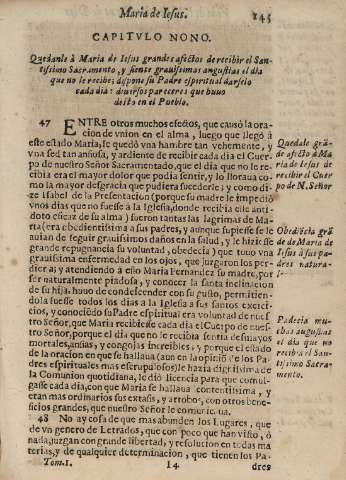 Maria de Iesus. 145
CAPITVLO NONO.
Quedanle à Maria de Iesus grandes afectos de recibir el San-
tissimo Sacramento, y siente grauissimas angustias el dia
que no le recibe; dispone su Padre espiritual darselo
cada dia: diuersos pareceres que huuo
desto en el Pueblo.
47 ENTRE otros muchos efectos, que causò la ora-
cion de vnion en el alma, luego que llegó à
este estado Maria, le quedò vna hambre tan vehemente, y
vna sed tan ansiosa, y ardiente de recibir cada dia el Cuer-
po de nuestro Señor Sacramentado, que el dia que no le re-
cibia era el mayor dolor que podia sentir, y lo lloraua co-
mo la mayor desgracia que pudiera sucederle; y como di-
ze Isabel de la Presentacion (porque su madre le impediò
vnos dias que no fuesse à la Iglesia, donde recibia este anti-
doto eficaz de su alma) fueron tantas las lagrimas de Ma-
ria (era obedientissima à sus padres, y aunque supiesse se le
auian de seguir grauissimos daños en la salud, y le hiziesse
grande repugnancia su voluntad, obedecia) que tuuo vna
grauissima enfermedad en los ojos, que juzgaron los per-
diera; y atendiendo à esto Maria Fernandez su madre, por
ser naturalmente piadosa, y conocer la santa inclinacion
de su hija, huuo de condescender con su gusto, permitien-
dola fuesse todos los dias a la Iglesia a sus santos exerci-
cios, y conociẽdo su Padre espiritual era voluntad de nues-
tro Señor, que Maria recibiesse cada dia el Cuerpo de nues-
tro Señor, porque el dia que no le recibia sentia desmayos
mortales, ansias, y congojas increibles; y porque el estado
de la oracion en que se hallaua (aun en la opiniõ de los Pa-
dres espirituales mas escrupulosos) le hazia dignissima de
la Comunion quotidiana, le diò licencia para que comul-
gasse cada dia, con que Maria se hallaua contentissima, y
eran mas ordinarios sus extasis, y arrobos, con otros bene-
ficios grandes, que nuestro Señor le comunicaua.
48 No ay cosa de que mas abunden los Lugares, que
de vn genero de Letrados, que con poco que han visto, ò
nada, juzgan con grande libertad, y resolucion en todas ma
terias, y de qualquier determinacion, que tienen los Pa-
Tom.I. 14 dres
Quedale grã-
de afecto à Ma
ria de Iesus de
recibir el Cuer
po de N. Señor
Obediẽcia grã
de de Maria de
Iesus à sus pa-
dres natura-
les
Padecia mu-
chas angustias
el dia que no
recibia el San-
tissimo Sacra-
mento.